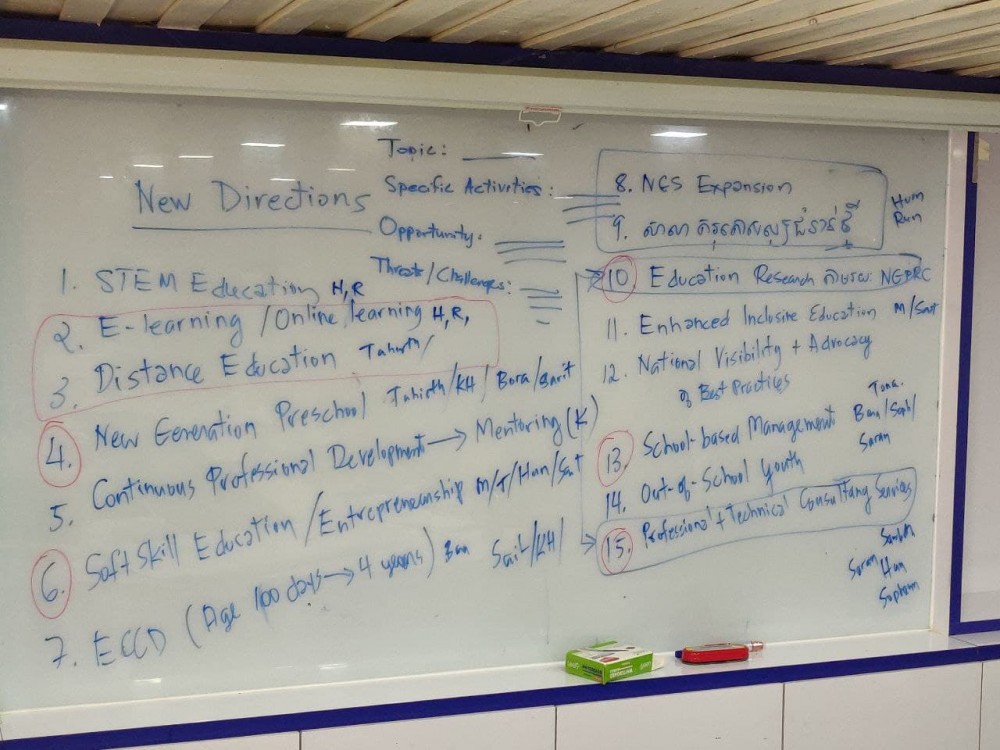 New Directions
Topic:
Specific Activities:
Opportunity.
Threats/Challenges:
1. STEM Education H,R
2. E-learning /Online learning H,R,
3. Distance Education
4. New Generation Preschool Tahirth/KH/ Bora/Sarit
5. Continuous Professional Development → Mentoring (K)
6. Soft Skill Education /Entrepreneurship M/T/Hun/Sat
7. ECCD (Age 1000 days → 4 years)
8. NGS Expansion
9. សាលា
Hum
Run
10. Education Research តាមរយៈ NGPRC
11. Enhanced Inclusive Education M/Sarit
12. National Visibility + Advocacy
of Best Practices
13. School-based Management
Saran
14. Out-of-School Youth
15. Professional + Technical Consulting Services
Saran Hun
Sophorn